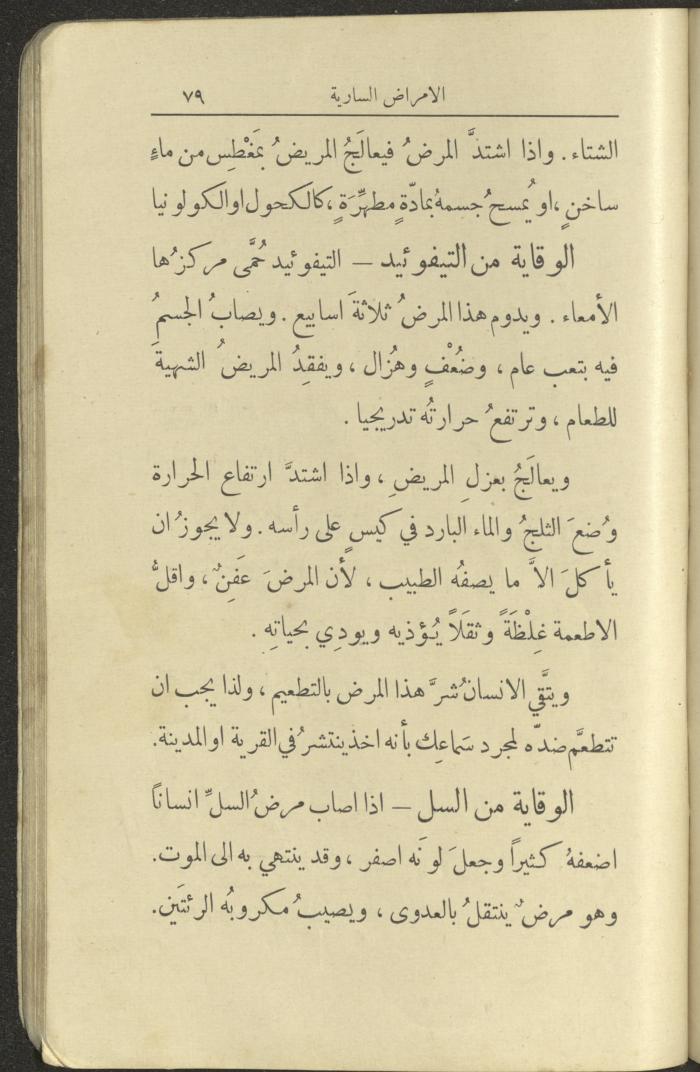 الامراض السارية ٧٩
الشتاء . واذا اشتدَّ المرضُ فيعالَجُ المريضُ بمَغْطِس من ماءٍ
ساخنٍ ، او يُمسحُ جسمهُ بمادّةٍ مطهِّرَةٍ ، كالكحول او الكولونيا
الوقاية من التيفوئيد — التيفوئيد حُمَّى مركزُها
الأمعاء . ويدوم هذا المرضُ ثلاثةَ اسابيع . ويصابُ الجسمُ
فيه بتعب عام ، وضُعْفٍ وهُزال ، ويفقِدُ المريضُ الشهيةَ
للطعام ، وترتفعُ حرارتُه تدريجيا .
ويعالَجُ بعزلِ المريضِ ، واذا اشتدَّ ارتفاع الحرارة
وُضعَ الثلجُ والماء البارد في كيسٍ على رأسه . ولا يجوزُ ان
يأكلَ الاَّ ما يصفُه الطبيب ، لأن المرضَ عَفِنٌ ، واقلُّ
الاطعمة غِلْظَةً وثقَلاً يُؤذيه ويودِي بحياتِه .
ويتَّقي الانسانُ شرَّ هذا المرض بالتطعيم ، ولذا يجب ان
تتطعَّم ضدّه لمجرد سَماعِك بأنه اخذ ينتشرُ في القرية او المدينة.
الوقاية من السل — اذا اصاب مرضُ السلِّ انساناً
اضعفهُ كثيراً وجعلَ لونَه اصفر ، وقد ينتهي به الى الموت.
وهو مرضٌ ينتقلُ بالعدوى ، ويصيبُ مكروبُه الرئتَين.